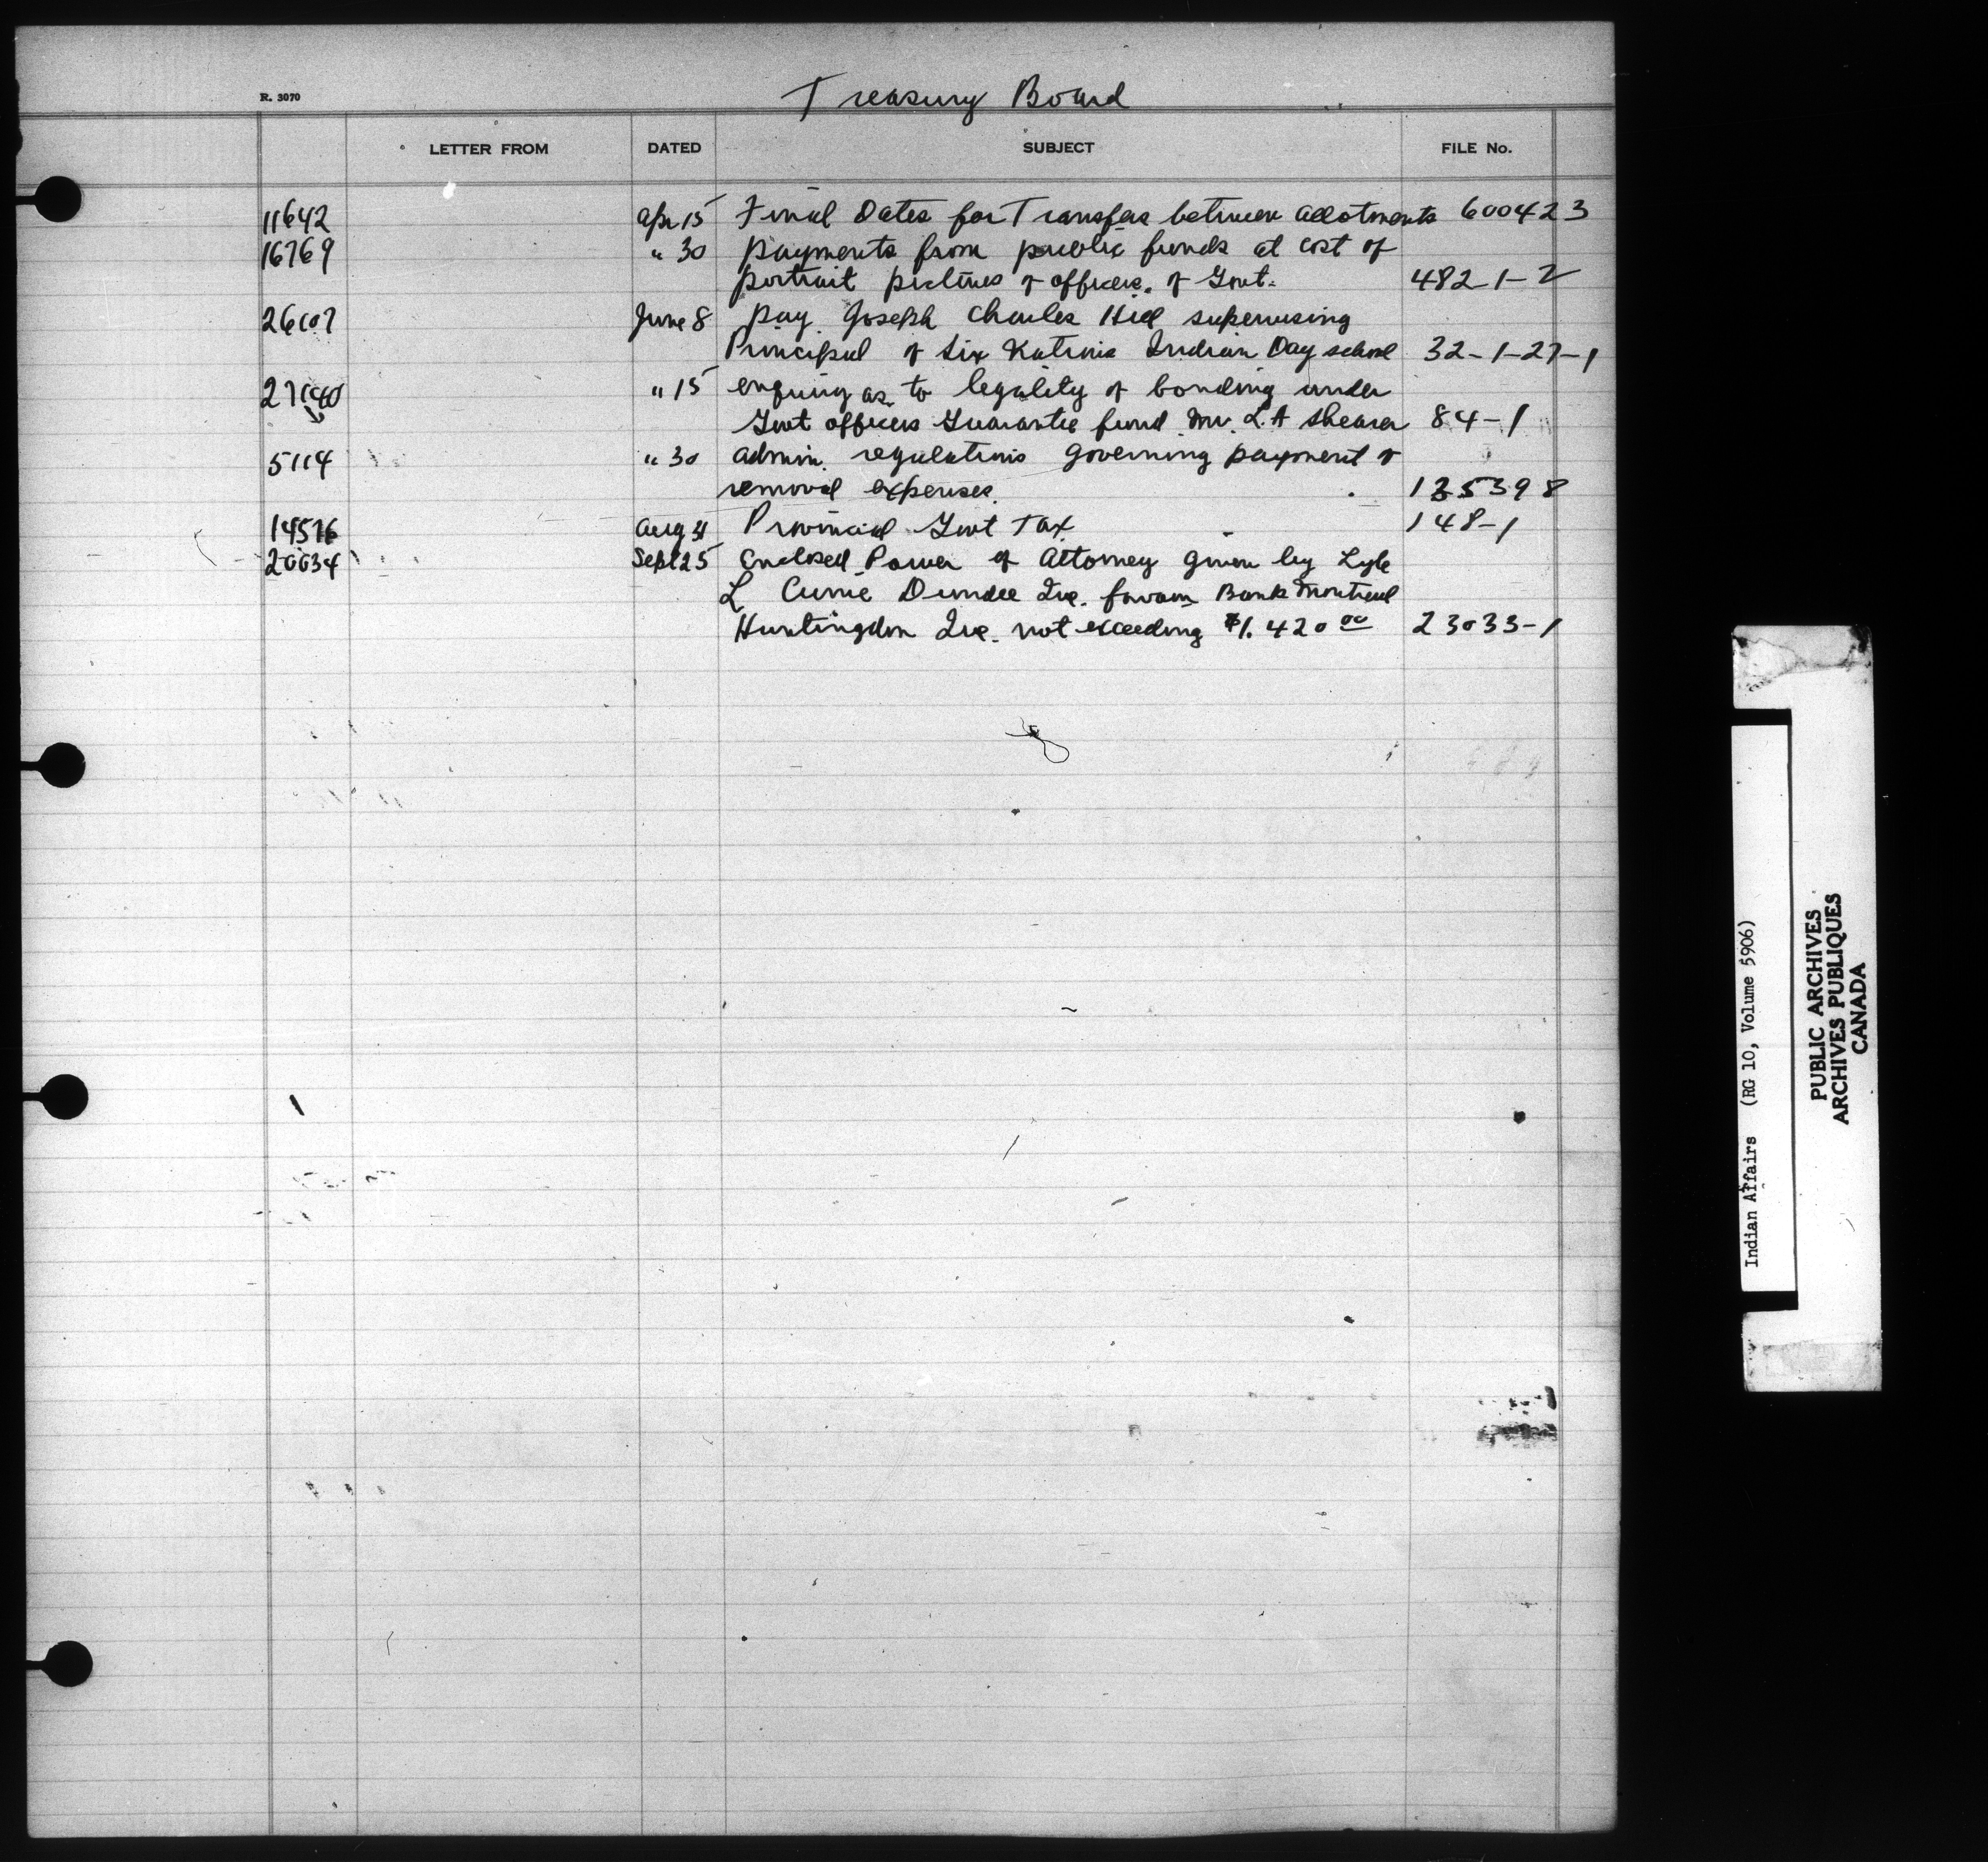 R. 3070
Treasury Board
LETTER FROM DATED SUBJECT FILE No.
11642 Apr 15 Final Dates for Transfers between allotments 600423
16769 " 30 payments from public funds at cost of
portrait pictures of officers. of Govt. 482-1-2
26107 June 8 pay. Joseph Charles Hill supervising
Principal of Six Nations Indian Day school 32-1-27-1
" 15 enquiry as to legality of bonding under
Govt officers Guarantee fund Mr. L.A Shearer 84-1
5114 " 30 admin. regulations governing payment of
removal expenses. 135398
14576 Aug 31 Provincial Govt Tax 148-1
20034 Sept 25 Enclosed Power of Attorney given by Lyle
L Currie Dundee Que. favour Bank Montreal
Huntingdon Que. not exceeding $1.420 00 23033-1
Indian Affairs (RG 10, Volume 5906)
PUBLIC ARCHIVES
ARCHIVES PUBLIQUES
CANADA